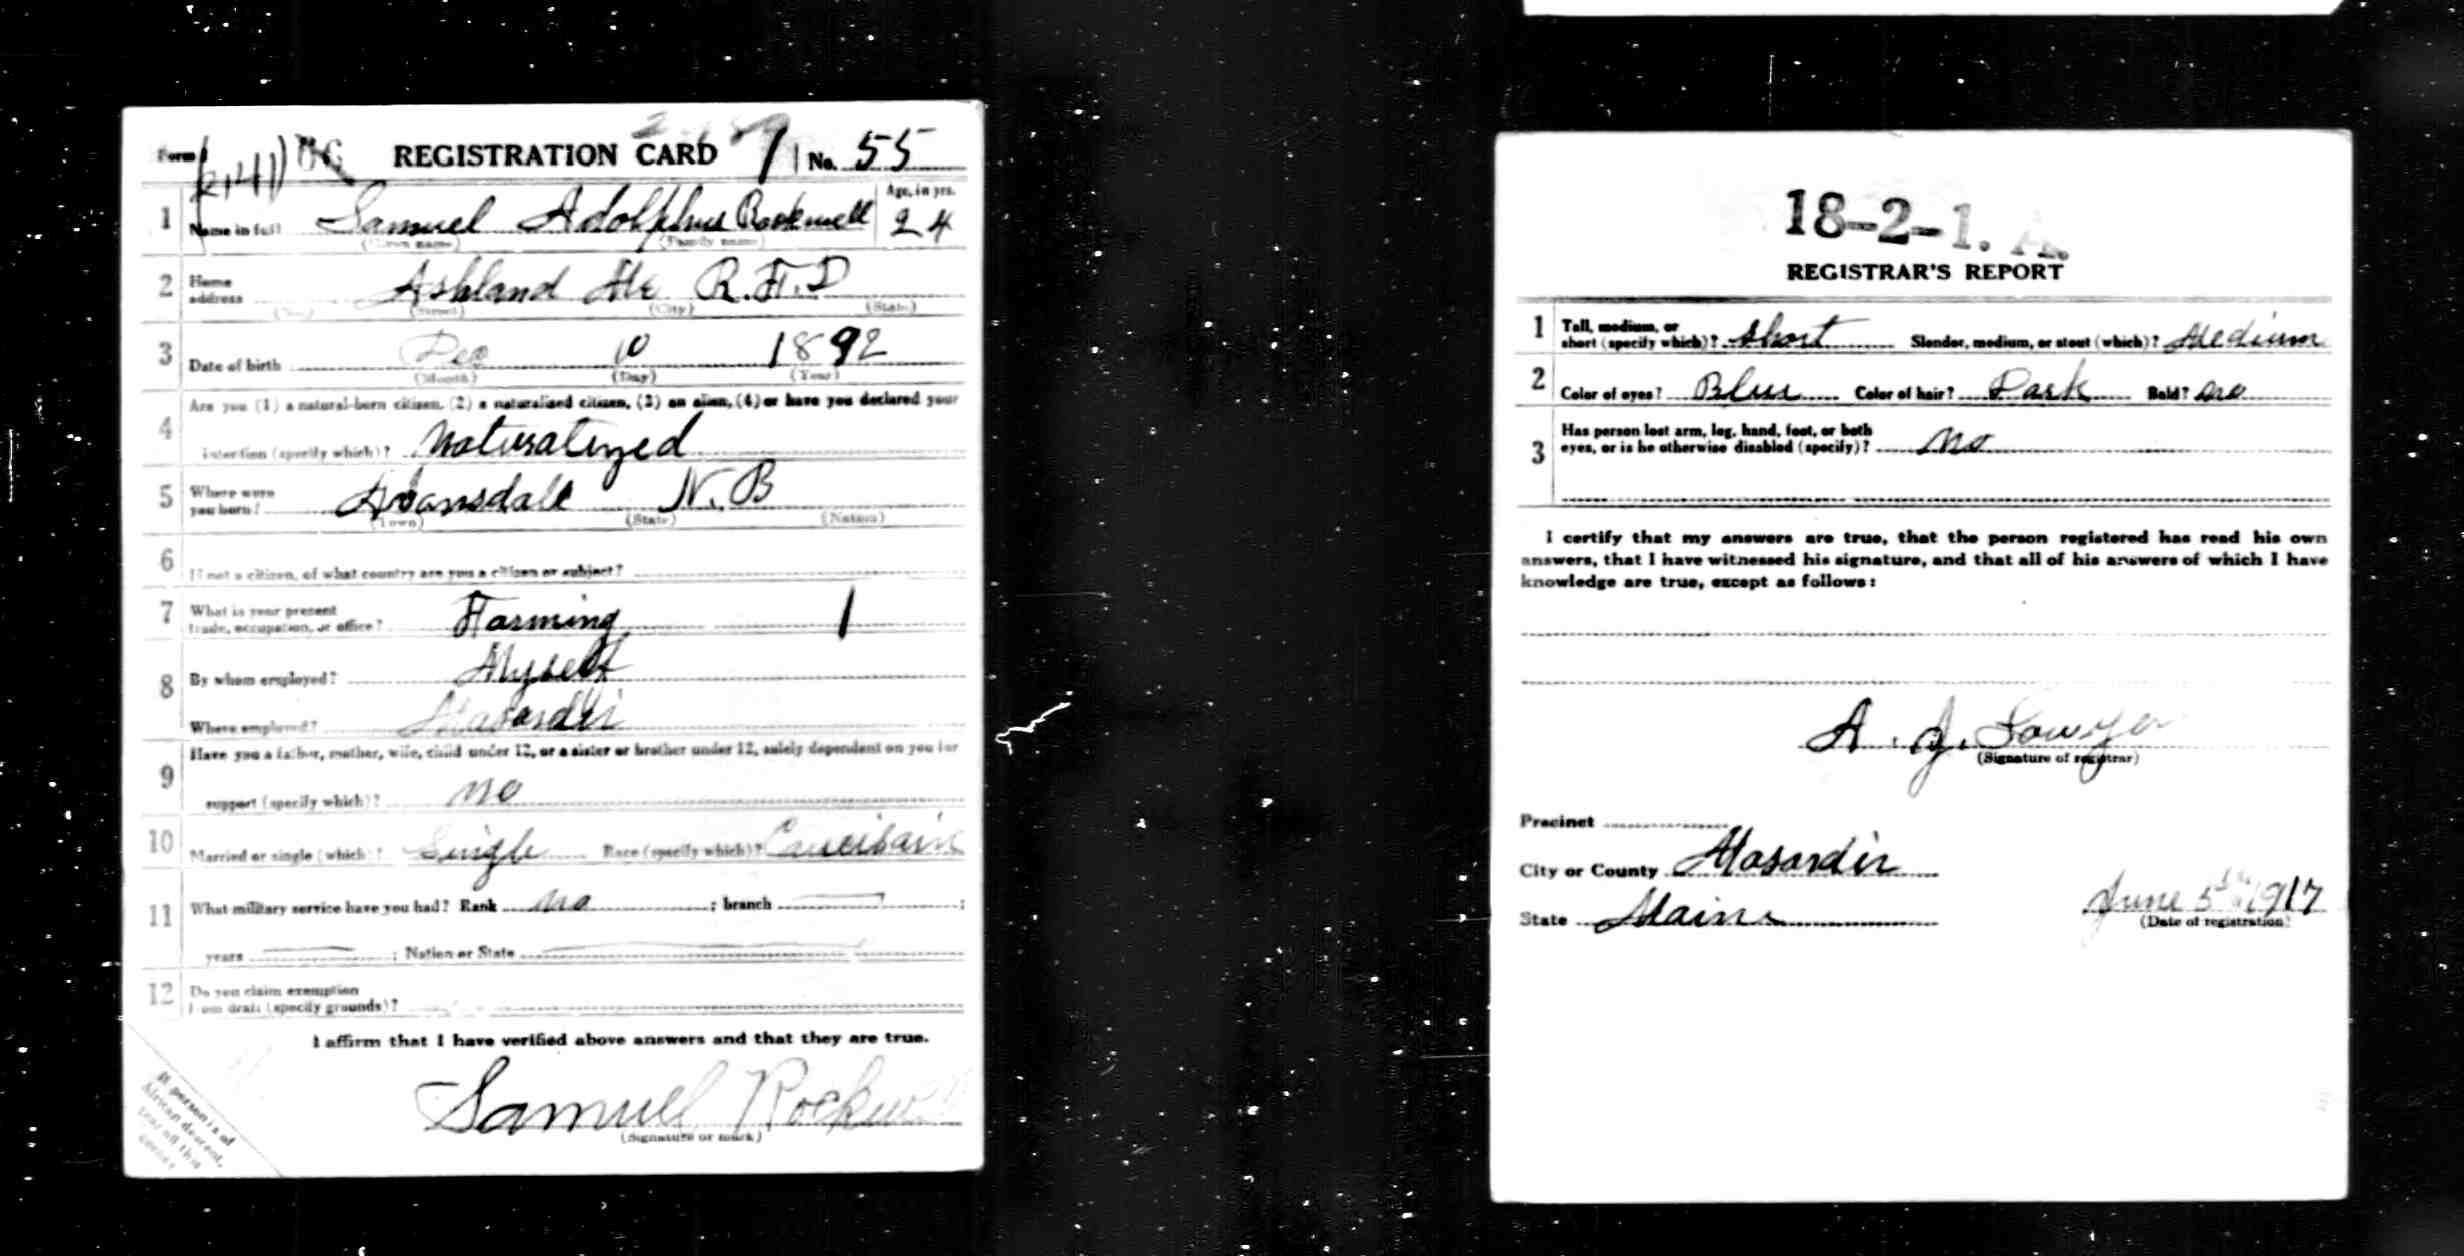 Form 1 REGISTRATION CARD No. 55
1 Name in full Samuel Adolphus Rockwell Age, in yrs. 24
(Given name) (Family name)
2 Home address Ashland Me R.F.D
(No.) (Street) (City) (State)
3 Date of birth Dec 10 1892
(Month) (Day) (Year)
4 Are you (1) a natural-born citizen, (2) a naturalized citizen, (3) an alien, (4) or have you declared your
intention (specify which)? Naturalized
5 Where were you born? N. B
(Town) (State) (Nation)
6 If not a citizen, of what country are you a citizen or subject?
7 What is your present trade, occupation, or office? Farming 1
8 By whom employed? Myself
Where employed? Masardis
9 Have you a father, mother, wife, child under 12, or a sister or brother under 12, solely dependent on you for
support (specify which)? no
10 Married or single (which)? Single Race (specify which)? Caucisain
11 What military service have you had? Rank no ; branch ;
years ; Nation or State
12 Do you claim exemption from draft (specify grounds)?
I affirm that I have verified above answers and that they are true.
Samuel Rockwell
(Signature or mark)
If person is of
African descent,
tear off this
corner
18-2-1. A.
REGISTRAR'S REPORT
1 Tall, medium, or short (specify which)? Short Slender, medium, or stout (which)? Medium
2 Color of eyes? Blue Color of hair? Dark Bald? no
3 Has person lost arm, leg, hand, foot, or both
eyes, or is he otherwise disabled (specify)? No
I certify that my answers are true, that the person registered has read his own
answers, that I have witnessed his signature, and that all of his answers of which I have
knowledge are true, except as follows:
A. J. Sawyer
(Signature of registrar)
Precinct
City or County Masardis
State Maine June 5th 1917
(Date of registration)